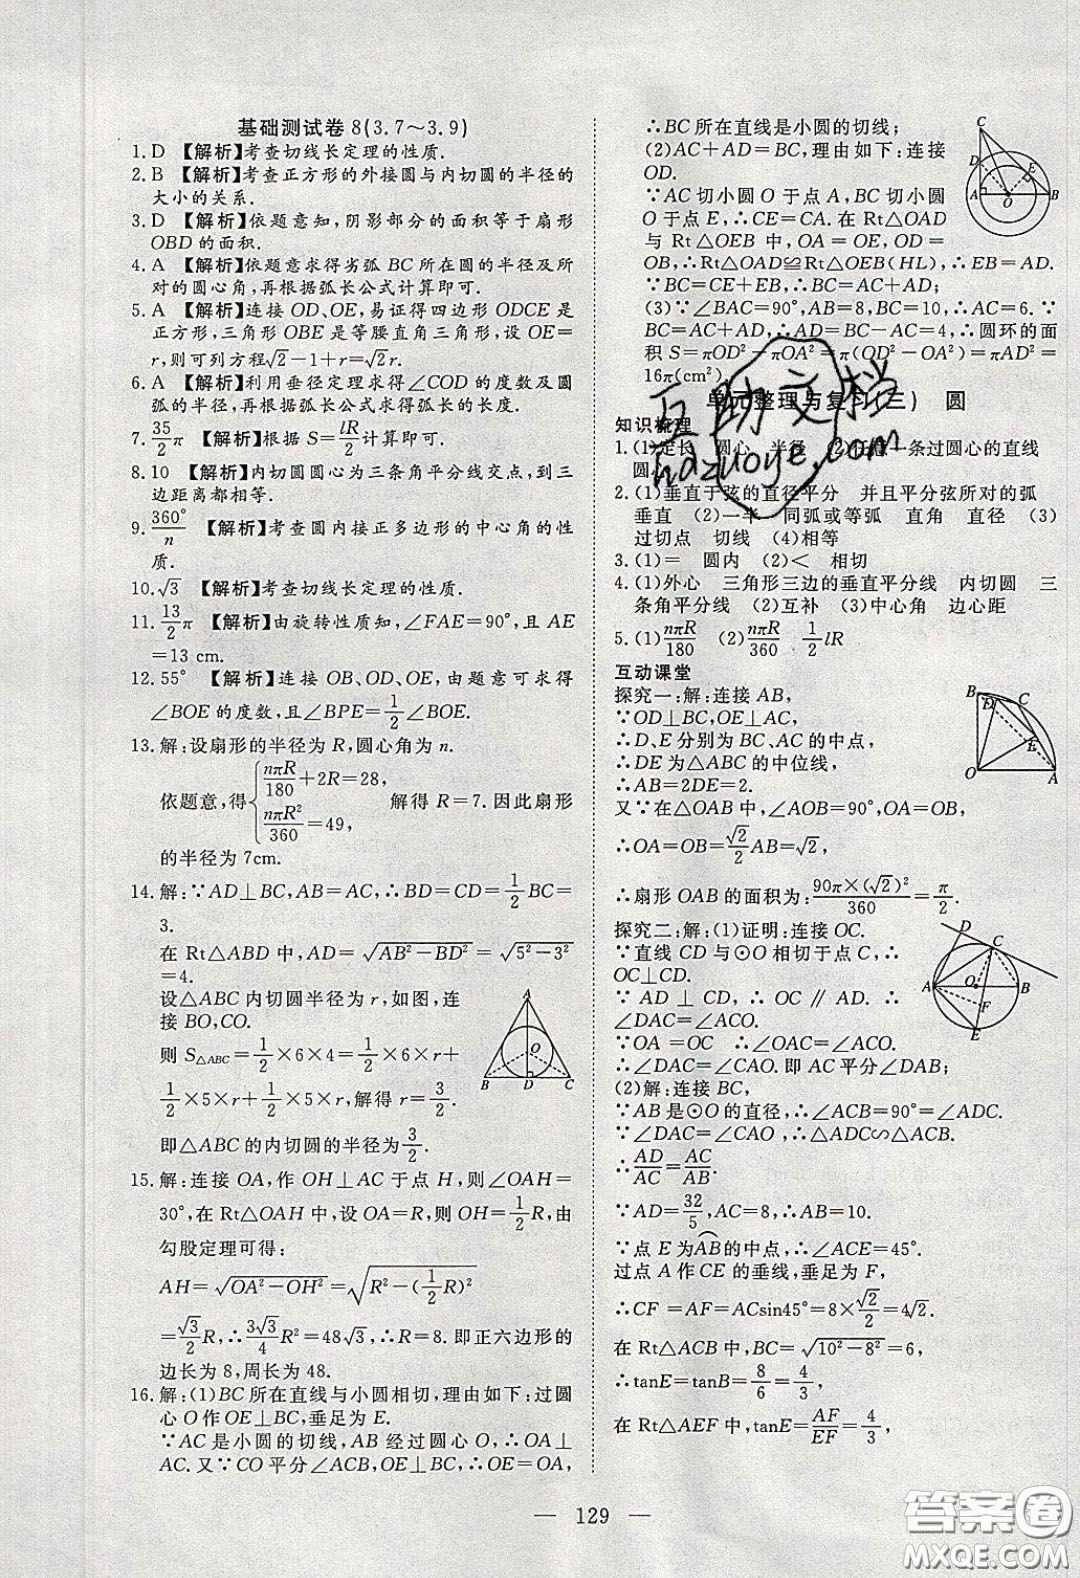 基础测试卷8(3.7～3.9)
1. D 【解析】考查切线长定理的性质.
2. B 【解析】考查正方形的外接圆与内切圆的半径的
大小的关系.
3. D 【解析】依题意知,阴影部分的面积等于扇形
OBD的面积.
4. A 【解析】依题意求得劣弧BC所在圆的半径及所
对的圆心角,再根据弧长公式计算即可.
5. A 【解析】连接OD、OE,易证得四边形ODCE是
正方形,三角形OBE是等腰直角三角形,设OE=
r,则可列方程√2-1+r=√2r.
6. A 【解析】利用垂径定理求得∠COD的度数及圆
的半径,再根据弧长公式求得长度.
7. 35/2π 【解析】根据S=lR/2计算即可.
8. 10 【解析】内切圆圆心为三条角平分线交点,到三
边距离都相等.
9. 360°/n 【解析】考查圆内接正多边形的中心角的性
质.
10. √3 【解析】考查切线长定理的性质.
11. 13/2π 【解析】由旋转性质知,∠FAE=90°,且AE
=13 cm.
12. 55° 【解析】连接OB、OD、OE,由题意可求得
∠BOE的度数,且∠BPE=1/2∠BOE.
13. 解:设扇形的半径为R,圆心角为n.
依题意,得{nπR/180+2R=28, nπR²/360=49, 解得R=7.因此扇形
的半径为7cm.
14. 解:∵AD⊥BC,AB=AC,∴BD=CD=1/2BC=
3.
在Rt△ABD中,AD=√(AB²-BD²)=√(5²-3²)
=4.
设△ABC内切圆半径为r,如图,连
接BO,CO.
则S△ABC=1/2×6×4=1/2×6×r+
1/2×5×r+1/2×5×r,解得r=3/2.
即△ABC的内切圆的半径为3/2.
A
O
B D C
15. 解:连接OA,作OH⊥AC于点H,则∠OAH=
30°,在Rt△OAH中,设OA=R,则OH=1/2R,由
勾股定理可得:
AH=√(OA²-OH²)=√(R²-(1/2R)²)
=√3/2R,∴3√3/4R²=48√3,∴R=8.即正六边形的
边长为8,周长为48.
16. 解:(1)BC所在直线与小圆相切,理由如下:过圆
心O作OE⊥BC,垂足为E.
∵AC是小圆的切线,AB经过圆心O,∴OA⊥
AC.又∵CO平分∠ACB,OE⊥BC,∴OE=OA,
∴BC所在直线是小圆的切线;
(2)AC+AD=BC,理由如下:连接
OD.
∵AC切小圆O于点A,BC切小圆
O于点E,∴CE=CA.在Rt△OAD
与Rt△OEB中,OA=OE,OD=
OB,∴Rt△OAD≌Rt△OEB(HL),∴EB=AD.
∵BC=CE+EB,∴BC=AC+AD;
(3)∵∠BAC=90°,AB=8,BC=10,∴AC=6.∵
BC=AC+AD,∴AD=BC-AC=4,∴圆环的面
积S=πOD²-πOA²=π(OD²-OA²)=πAD²=
16π(cm²)
C
D
E
A O B
单元整理与复习(三) 圆
知识梳理
1. (1)定长 圆心 半径 (2)任意一条过圆心的直线
圆心
2. (1)垂直于弦的直径平分 并且平分弦所对的弧
垂直 (2)一半 同弧或等弧 直角 直径 (3)
过切点 切线 (4)相等
3. (1)= 圆内 (2)< 相切
4. (1)外心 三角形三边的垂直平分线 内切圆 三
条角平分线 (2)互补 (3)中心角 边心距
5. (1)nπR/180 (2)nπR/360 1/2lR
互动课堂
探究一:解:连接AB,
∵OD⊥BC,OE⊥AC,
∴D、E分别为BC、AC的中点,
∴DE为△ABC的中位线,
∴AB=2DE=2.
又∵在△OAB中,∠AOB=90°,OA=OB,
∴OA=OB=√2/2AB=√2,
∴扇形OAB的面积为:90π×(√2)²/360=π/2.
B
D
C
E
O A
探究二:解:(1)证明:连接OC.
∵直线CD与⊙O相切于点C,∴
OC⊥CD.
∵AD⊥CD,∴OC∥AD.∴
∠DAC=∠ACO.
∵OA=OC ∴∠OAC=∠ACO.
∴∠DAC=∠CAO.即AC平分∠DAB.
(2)解:连接BC,
∵AB是⊙O的直径,∴∠ACB=90°=∠ADC.
∵∠DAC=∠CAO,∴△ADC∽△ACB.
∴AD/AC=AC/AB.
∵AD=32/5,AC=8,∴AB=10.
∵点E为AB⌒的中点,∴∠ACE=45°.
过点A作CE的垂线,垂足为F,
∴CF=AF=ACsin45°=8×√2/2=4√2.
在Rt△ACB中,BC=√(10²-8²)=6,
∴tanE=tanB=8/6=4/3,
在Rt△AEF中,tanE=AF/EF=4/3,
D
C
A
O
B
F
E
互助文档
hdzuoye.com
— 129 —
答案圈
MXQE.COM